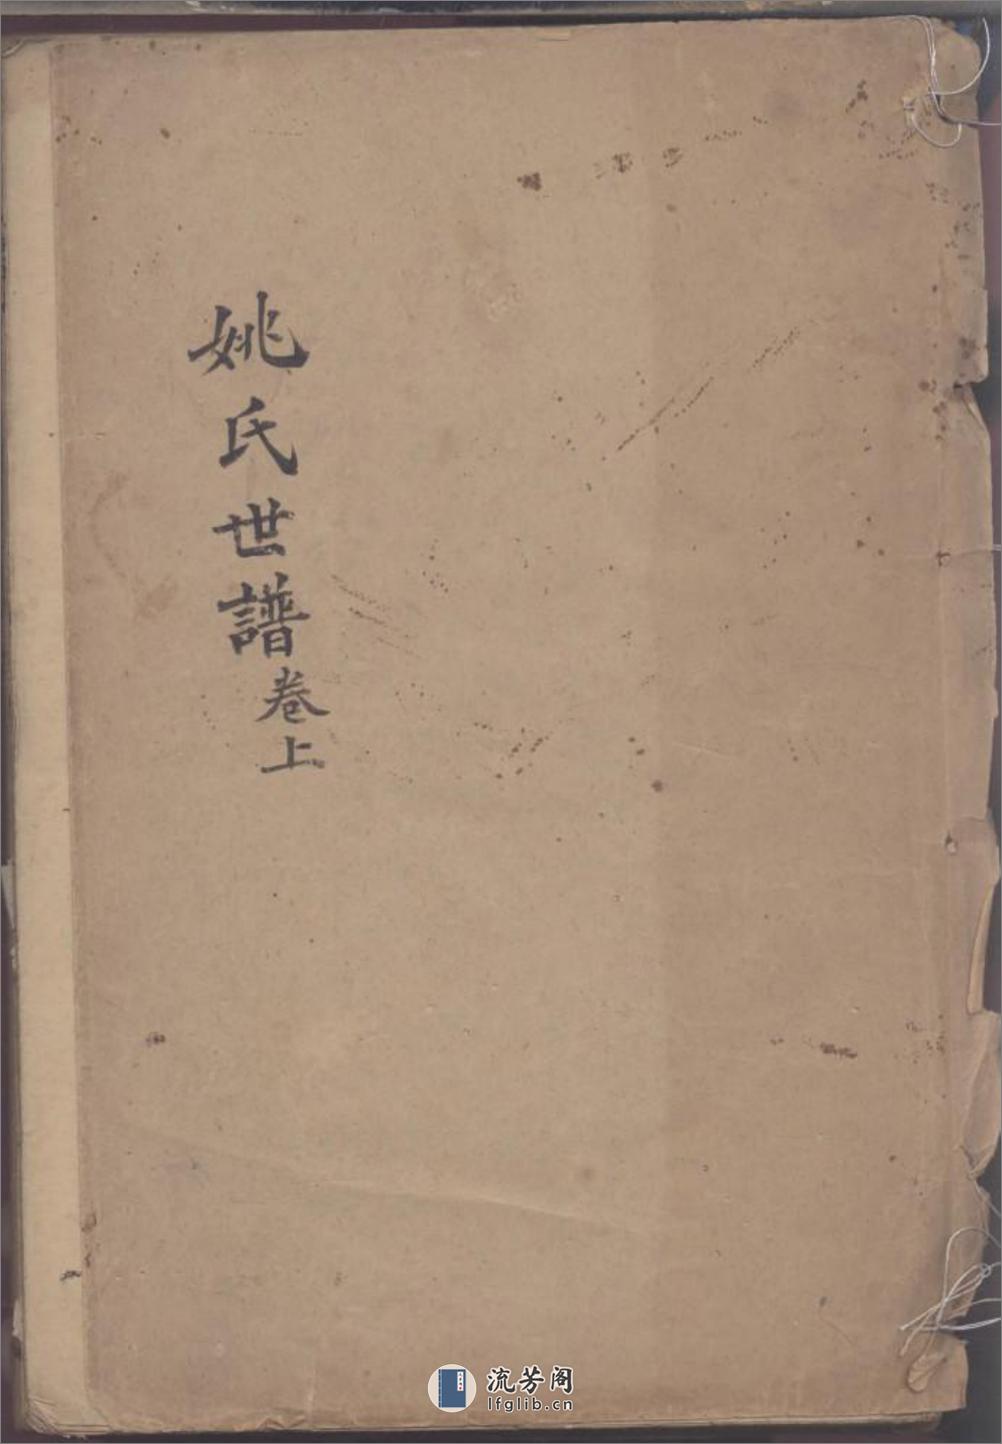 姚氏世譜卷上
流芳阁
lfglib.cn